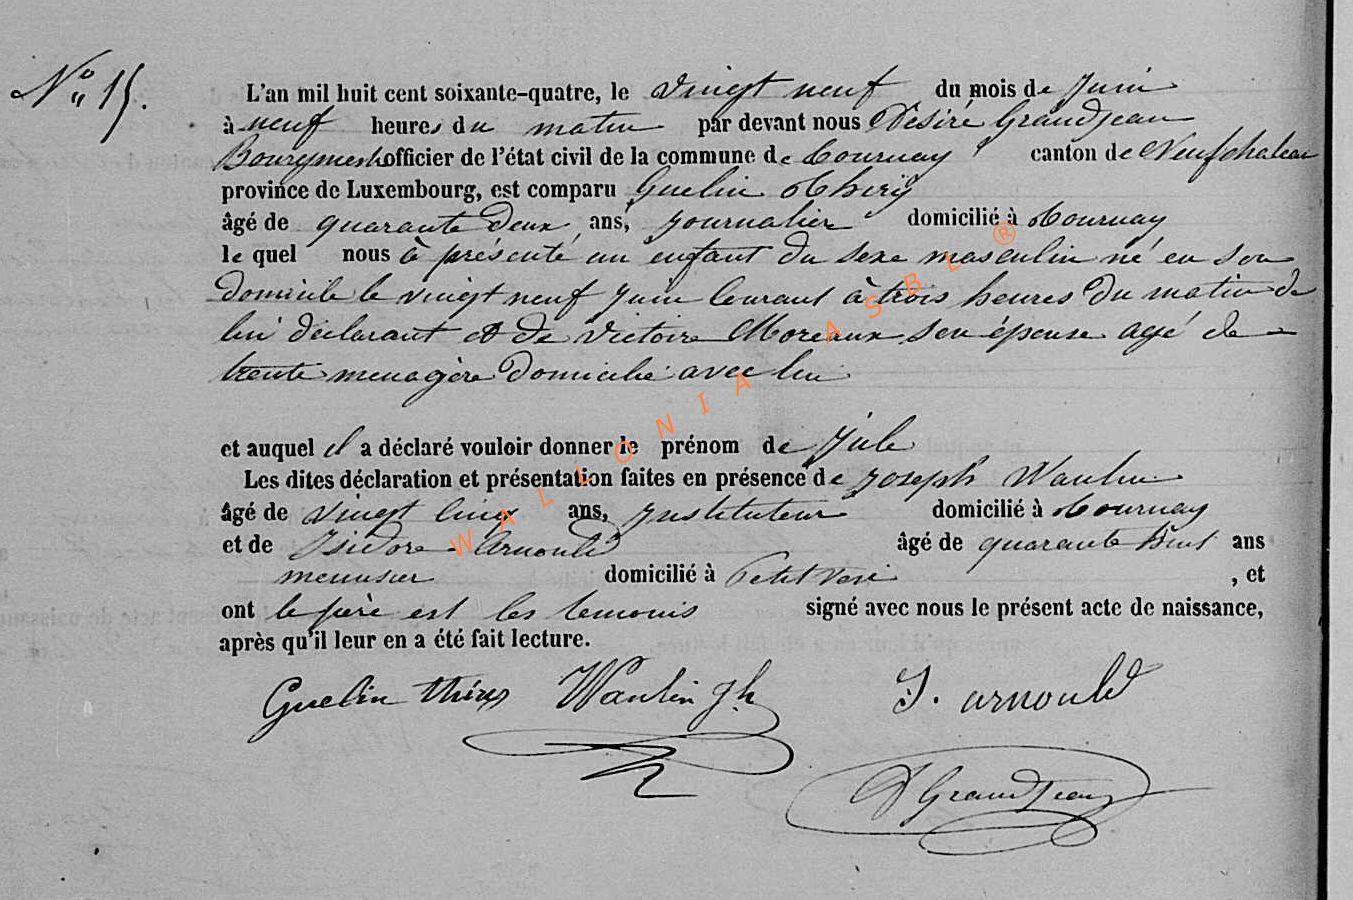 N° 15.
L'an mil huit cent soixante-quatre, le vingt neuf du mois de Juin
à neuf heures du matin par devant nous Désiré Grandjean
Bourgmestre officier de l'état civil de la commune de Tournay canton de Neufchateau
province de Luxembourg, est comparu Guelin Thiry
âgé de quarante deux ans, journalier domicilié à Tournay
le quel nous à présenté un enfant du sexe masculin né en son
domicile le vingt neuf Juin courant à trois heures du matin de
lui déclarant et de Victoire Moreaux son épouse agé de
trente menagère domicilié avec lui
et auquel il a déclaré vouloir donner le prénom de Jule
Les dites déclaration et présentation faites en présence de Joseph Waulin
âgé de vingt cinq ans, Instituteur domicilié à Tournay
et de Isidore Arnould âgé de quarante ans
menusier domicilié à Petitvoir , et
ont le père est les temouis signé avec nous le présent acte de naissance,
après qu'il leur en a été fait lecture.
Guelin thiry Waulin Jh J. arnould
D Grandjean
WALLONIA ASBL ®